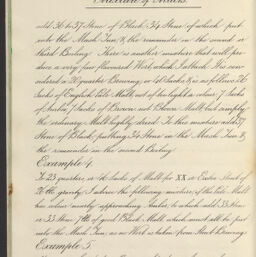 Mixture of Malts.
add 36 to 37 Stone of Black, 34 Stone of which put
into the Mash Tun, & the remainder in the second or
third Boiling. There is another mixture that will pro-
duce a very fine flavoured Wort which I attach. He now
ordered a 20 quarter Brewing, or 40 Sacks, & is as follows 26
Sacks of English Pale Malt, not of too light a colour, 7 Sacks
of Amber, 7 Sacks of Brown, not Blown Malt, but simply
the ordinary Malt highly dried. To this mixture add 37
Stone of Black, putting 34 Stone in the Mash Tun &
the remainder in the second Boiling.
Example 4.
To 23 quarters, or 46 Sacks of Malt for XX or Extra Stout of
26 lb gravity I advise the following mixture, of the Pale Malt
has colour nearly approaching Amber, to which add 33 Stone
or 33 Stone 7 lb of good Black Malt which must all be put
into the Mash Tun as no Wort is taken from Stout Brewing.
Example 5.